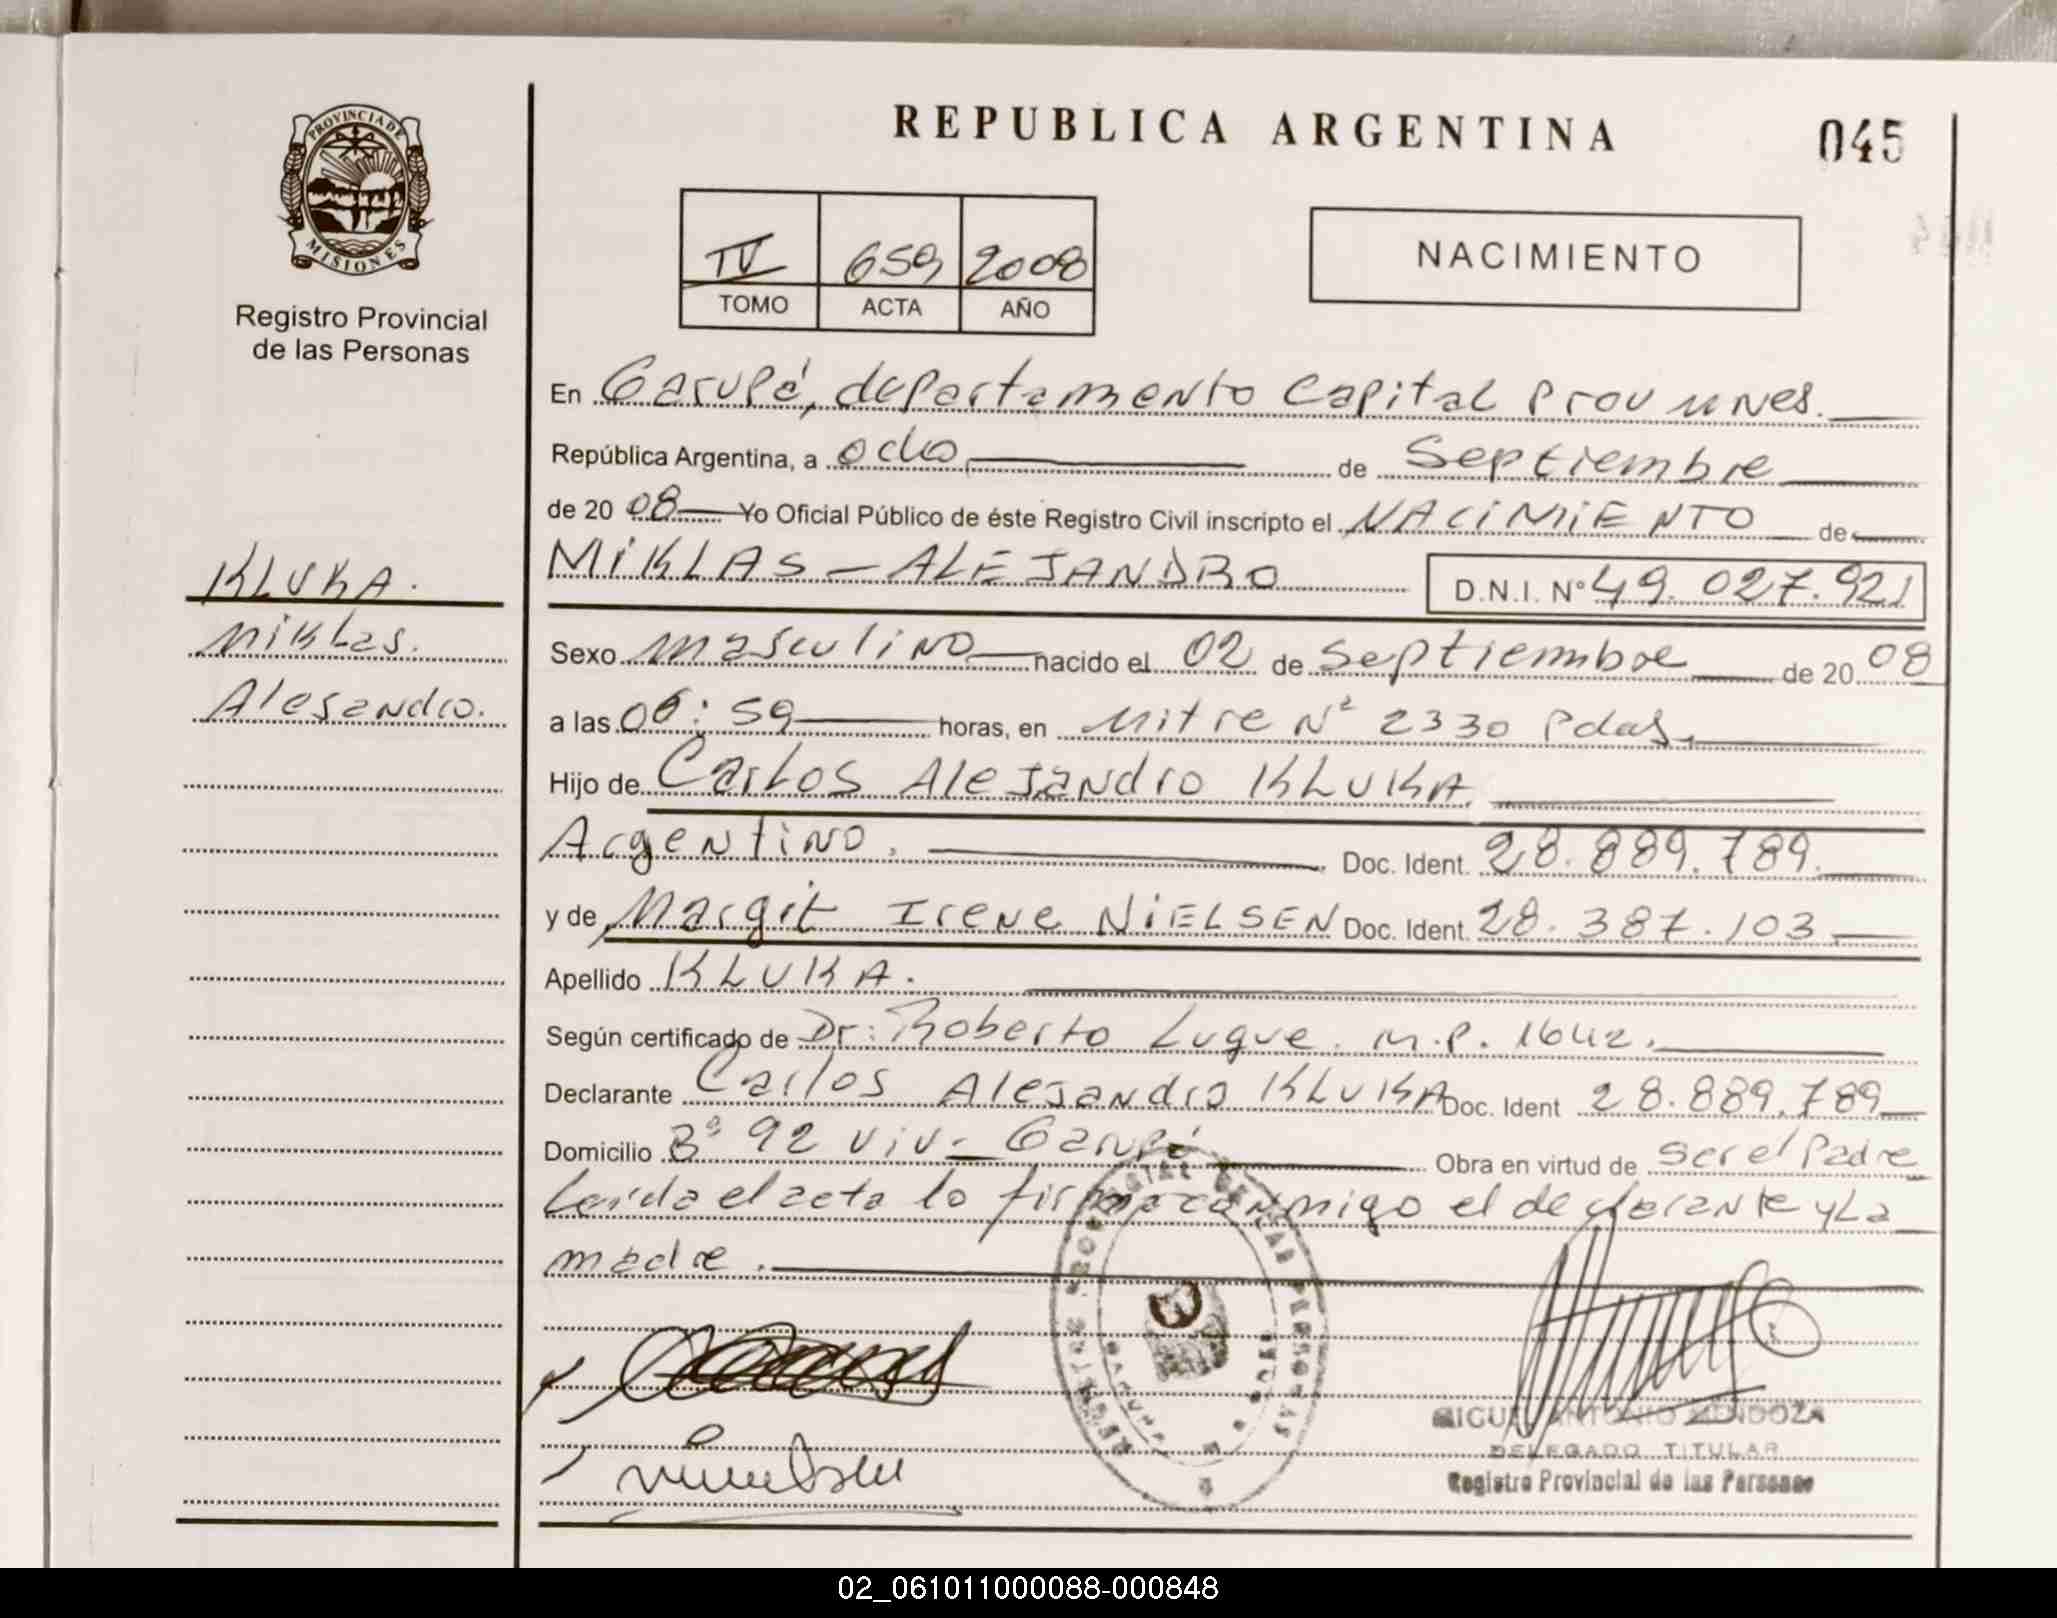 PROVINCIA DE
MISIONES
Registro Provincial
de las Personas
KLUKA.
Miklas.
Alejandro.
REPUBLICA ARGENTINA
045
IV 659 2008
TOMO ACTA AÑO
NACIMIENTO
En Garupá, departamento Capital Prov
República Argentina, a ocho de Septiembre
de 20 08 Yo Oficial Público de éste Registro Civil inscripto el NACIMIENTO de
MIKLAS - ALEJANDRO D.N.I. Nº 49.027.921
Sexo masculino nacido el 02 de Septiembre de 20 08
a las 06:59 horas, en Mitre Nº 2330 Pdas.
Hijo de Carlos Alejandro KLUKA
Argentino. Doc. Ident. 28.889.789.
y de Margit Irene NIELSEN Doc. Ident. 28.387.103
Apellido KLUKA.
Según certificado de Dr: Roberto Luque. M.P. 1642.
Declarante Carlos Alejandro KLUKA Doc. Ident 28.889.789
Domicilio Bº 92 viv - Garupá Obra en virtud de ser el Padre
Leída el acta lo firma conmigo el declarante y La
madre.
MIGUEL ANTONIO MENDOZA
DELEGADO TITULAR
Registro Provincial de las Personas
02_061011000088-000848